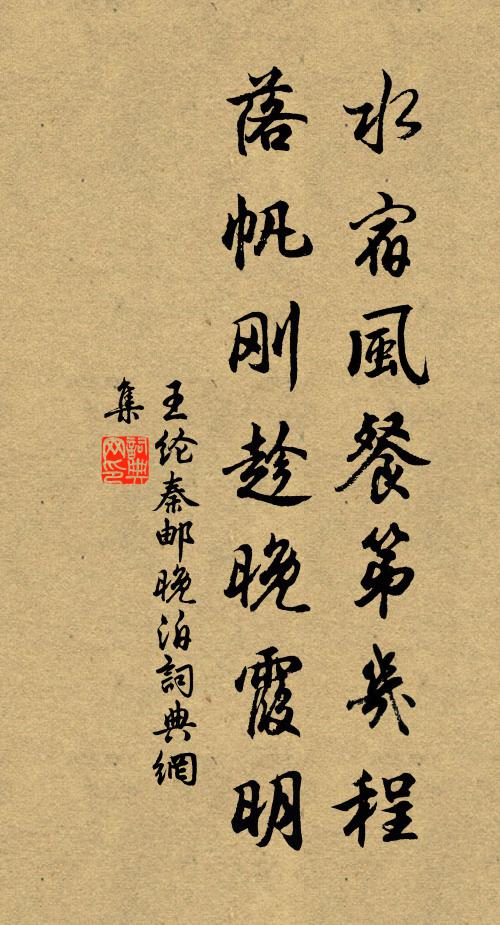 水宿風餐第幾程
落帆刚趁晚霞明
王纶秦邮晚泊詞典網
集
詞典网印